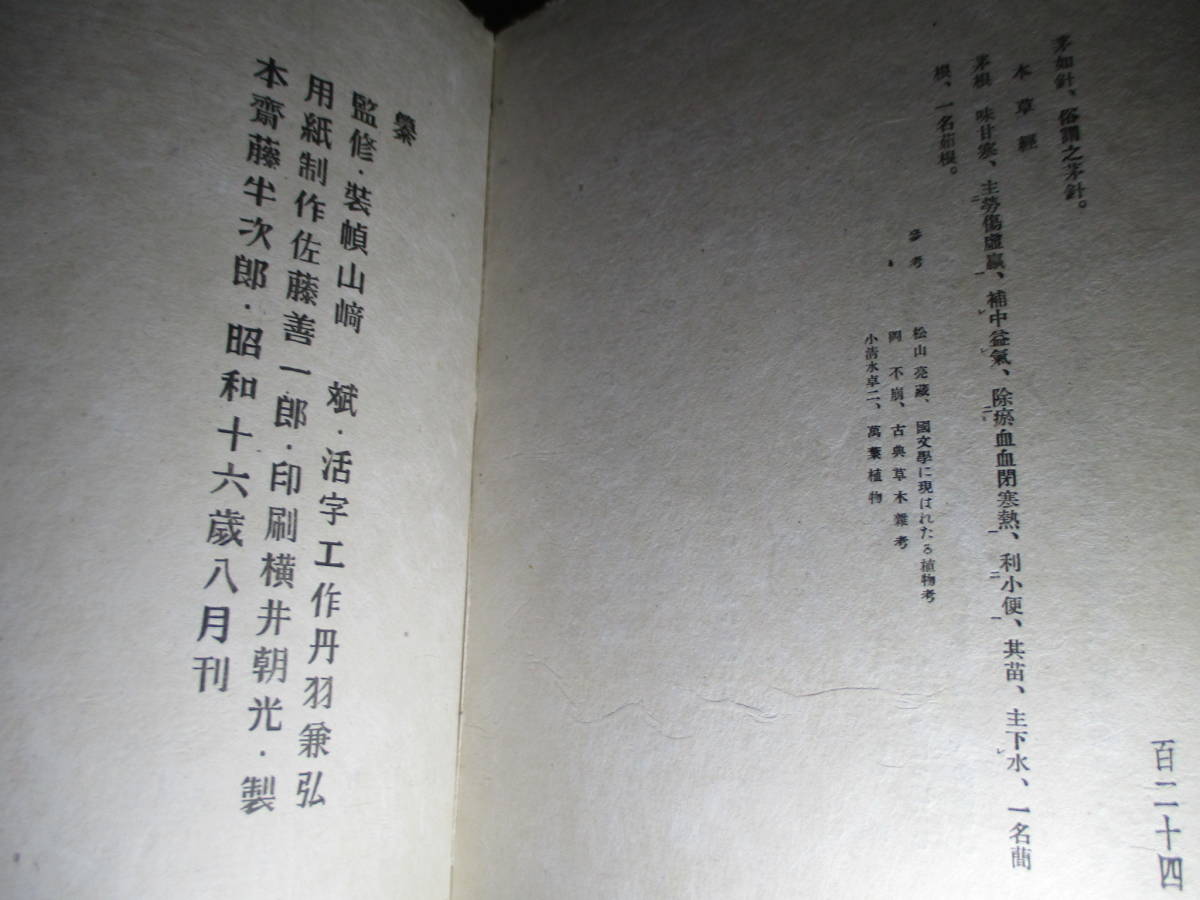 茅如針、俗謂之茅針。
本草經
茅根 味甘寒、主勞傷虛羸、補中益氣、除瘀血血閉寒熱、利小便、其苗、主下水、一名蕳
根、一名茹根。
參考
松山亮藏、國文學に現はれたる植物考
岡不崩、古典草木雜考
小淸水卓二、萬葉植物
百二十四
纂
監修・裝幀山﨑 斌・活字工作丹羽兼弘
用紙制作佐藤善一郎・印刷横井朝光・製
本齋藤半次郎・昭和十六歲八月刊